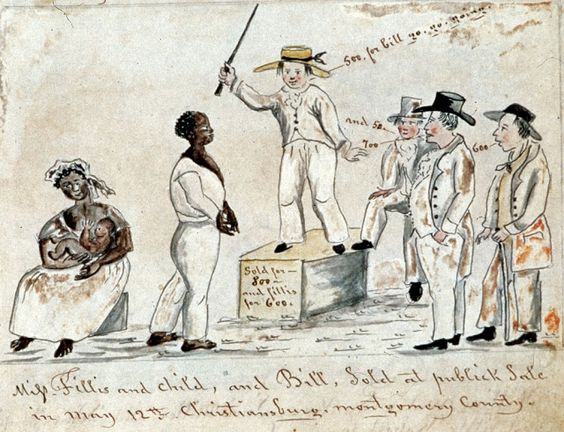 500 for bill go, go, going
and 50
700
600
Sold for—
800—
and fillis
for 600.
Miss Fillis and child, and Bill, Sold at publick Sale
in May 12th, Christiansburg, Montgomery County.